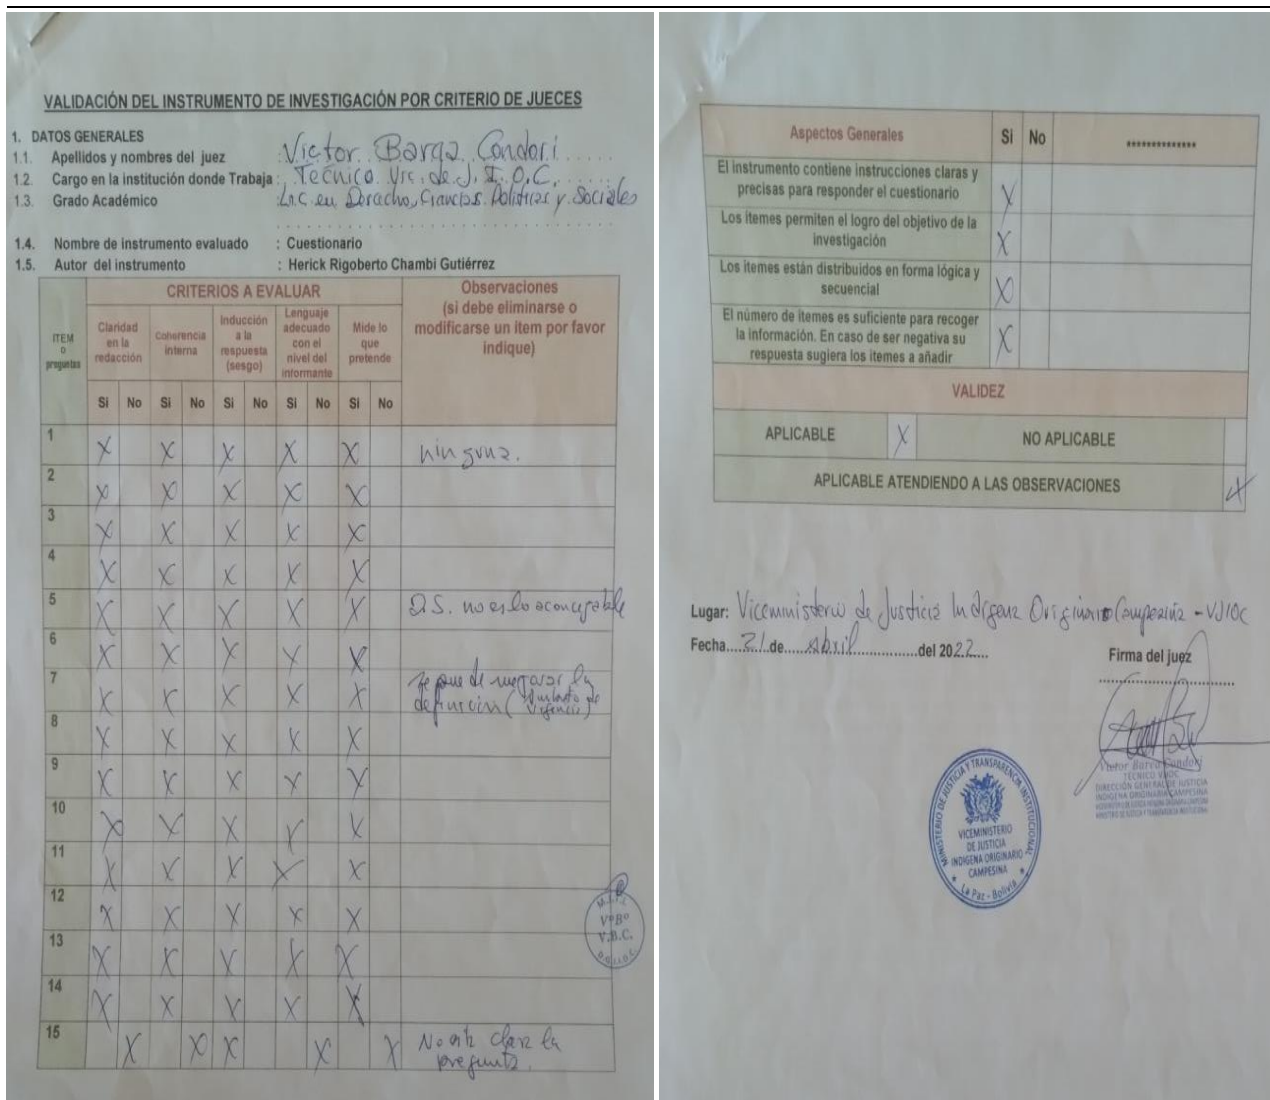 VALIDACIÓN DEL INSTRUMENTO DE INVESTIGACIÓN POR CRITERIO DE JUECES
1. DATOS GENERALES
1.1. Apellidos y nombres del juez : Victor Barga Condori
1.2. Cargo en la institución donde Trabaja : Técnico Vic. de J. I. O. C.
1.3. Grado Académico : Lic. en Derecho, Ciencias Políticas y Sociales
1.4. Nombre de instrumento evaluado : Cuestionario
1.5. Autor del instrumento : Herick Rigoberto Chambi Gutiérrez
ITEM o preguntas
CRITERIOS A EVALUAR
Observaciones (si debe eliminarse o modificarse un item por favor indique)
Claridad en la redacción
Coherencia interna
Inducción a la respuesta (sesgo)
Lenguaje adecuado con el nivel del informante
Mide lo que pretende
Si No Si No Si No Si No Si No
1 X X X X X ninguna.
2 X X X X X
3 X X X X X
4 X X X X X
5 X X X X X D.S. no es lo aconsejable
6 X X X X X
7 X X X X X se puede mejorar la
definición (
8 X X X X X
9 X X X X X
10 X X X X X
11 X X X X X
12 X X X X X
13 X X X X X
14 X X X X X
15 X X X X X No está clara la
pregunta.
VºBº
V.B.C.
Aspectos Generales Si No **************
El instrumento contiene instrucciones claras y
precisas para responder el cuestionario X
Los itemes permiten el logro del objetivo de la
investigación X
Los itemes están distribuidos en forma lógica y
secuencial X
El número de itemes es suficiente para recoger
la información. En caso de ser negativa su
respuesta sugiera los itemes a añadir X
VALIDEZ
APLICABLE X NO APLICABLE
APLICABLE ATENDIENDO A LAS OBSERVACIONES X
Lugar: Viceministerio de Justicia Indígena Originario Campesina - VJIOC
Fecha....21.de....Abril....del 2022....
Firma del juez
Victor Barga Condori
TÉCNICO VJIOC
DIRECCIÓN GENERAL DE JUSTICIA
INDIGENA ORIGINARIA CAMPESINA
MINISTERIO DE JUSTICIA Y TRANSPARENCIA INSTITUCIONAL
VICEMINISTERIO
DE JUSTICIA
INDIGENA ORIGINARIO
CAMPESINA
La Paz - Bolivia